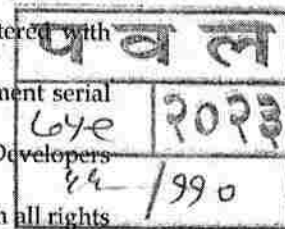 tered with
प व ल
ment serial
२०२३
Developers
/११०
n all rights